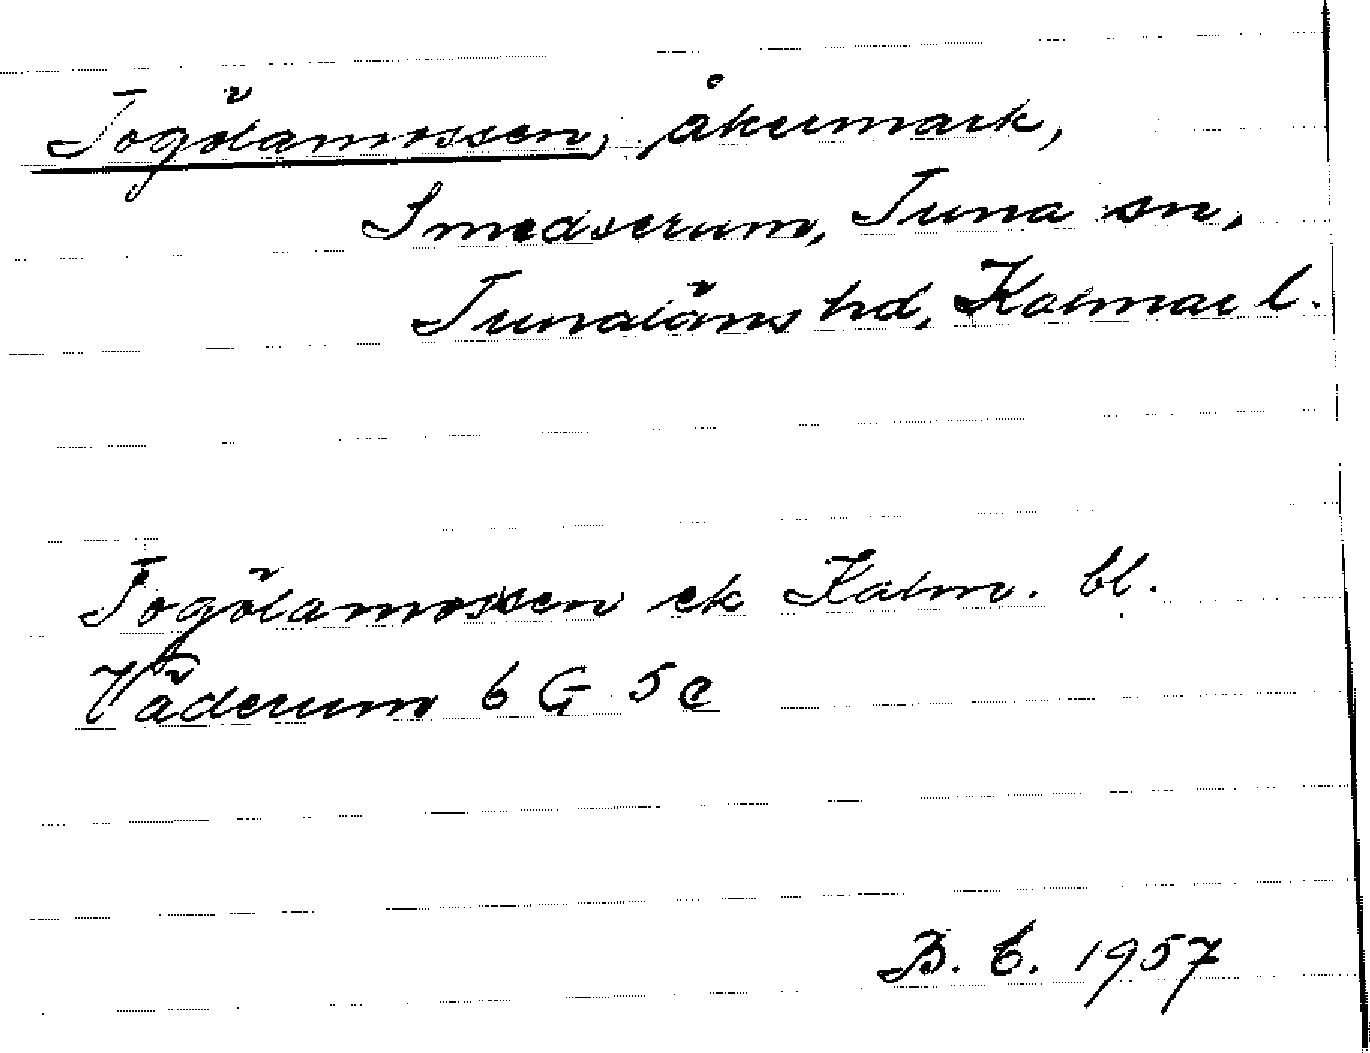 Togölamossen, åkermark,
Smedserum, Tuna sn,
Tunaläns hd, Kalmar l.
Togölamossen ek Kalm. bl.
Väderum 6 G 5 c
B. E. 1957